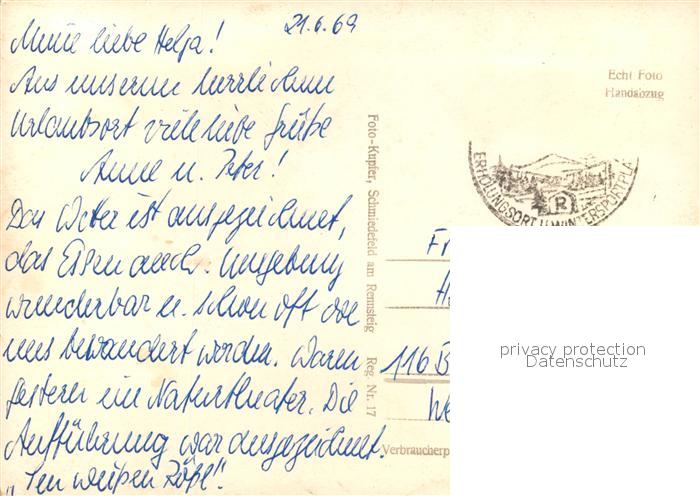 21.6.69
Meine liebe Helga!
Aus unserem herrlichen
Urlaubsort viele liebe Grüße
Anne u. Peter!
Das Wetter ist ausgezeichnet,
das Essen auch. Umgebung
wunderbar u. schon oft von
uns bewandert worden. Waren
gestern im Naturtheater. Die
Aufführung war ausgezeichnet.
„Im weißen Rößl".
Echt Foto
Handabzug
Foto-Kupfer, Schmiedefeld am Rennsteig Reg Nr. 17
ERHOLUNGSORT U. WINTERSPORTPLA
R
Fr
H
116 B
We
Verbraucherp
privacy protection
Datenschutz